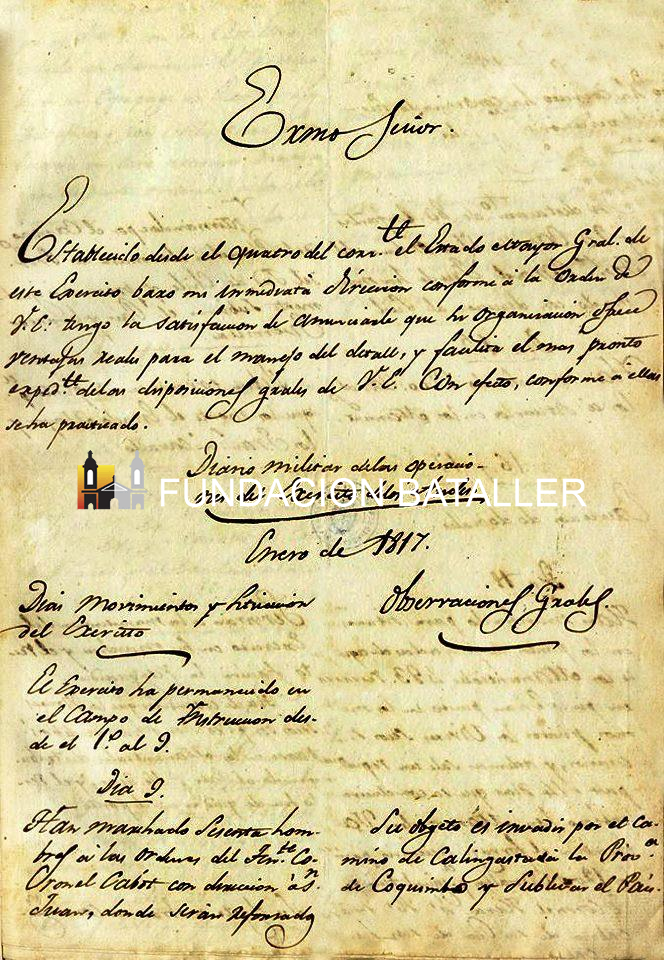 Exmo Señor.
Establecido desde el quatro del corr.te el Estado Mayor Gral. de
este Exercito baxo mi inmediata direccion conforme à la orden de
V.E. tengo la satisfaccion de anunciarle que su organizacion ofrece
ventajas reales para el manejo del detall, y facilita el mas pronto
exped.te de las disposiciones grales de V.E. Con efecto, conforme à ellas
se ha practicado.
Diario militar de las operacio-
nes del Exercito de los Andes
FUNDACION BATALLER
Enero de 1817.
Dias Movimientos y situacion
del Exercito
Observaciones Grales.
El Exercito ha permanecido en
el Campo de Instruccion des-
de el 1.º al 9.
Dia 9.
Han marchado sesenta hom-
bres à las ordenes del Ten.te Co-
ronel Cabot con direccion à S.n
Juan, donde seràn reforzados
Su objeto es invadir por el ca-
mino de Calingasta à la Prov.a
de Coquimbo y sublevar el Pais.